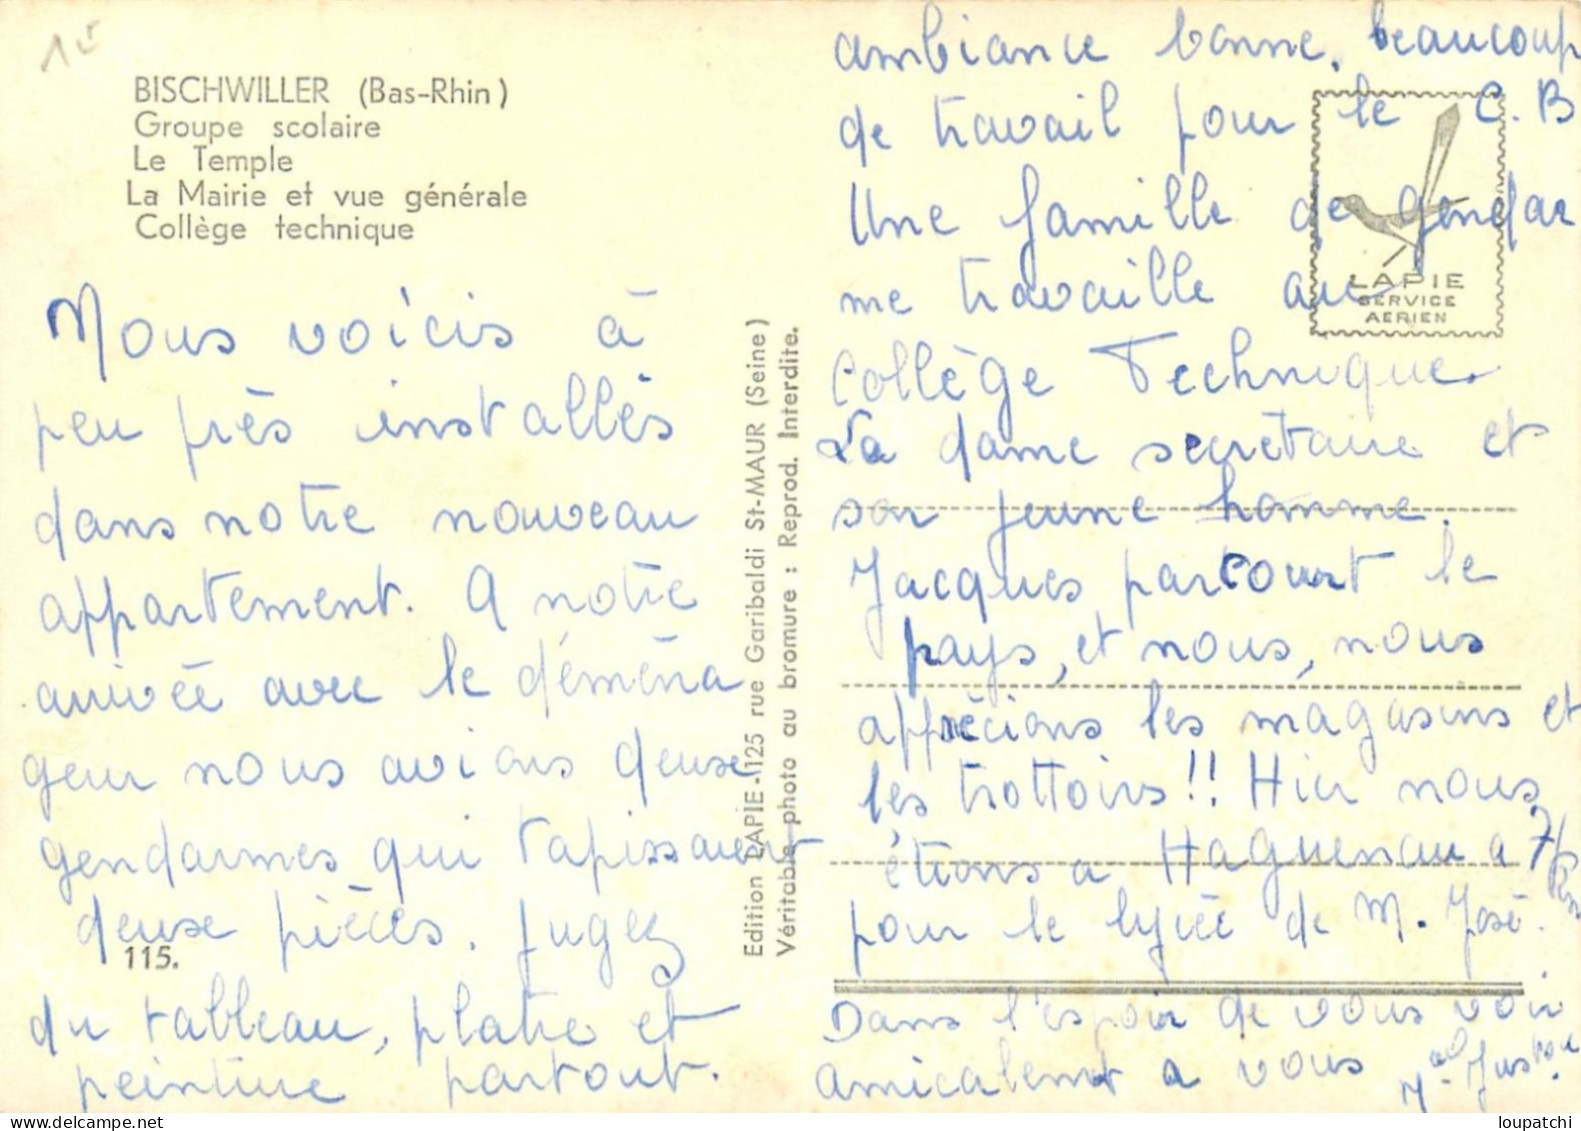 15
BISCHWILLER (Bas-Rhin)
Groupe scolaire
Le Temple
La Mairie et vue générale
Collège technique
Nous voicis à
peu près installés
dans notre nouveau
appartement. A notre
arrivée avec le déména
geur nous avions deux
gendarmes qui tapissaient
deux pièces. Jugez
115.
du tableau, platre et
peinture partout.
Edition LAPIE-125 rue Garibaldi St-MAUR (Seine)
Véritable photo au bromure : Reprod. Interdite.
LAPIE
SERVICE
AERIEN
ambiance bonne, beaucoup
de travail pour le C.B
Une famille de gendar
me travaille au
Collège Technique.
La dame secrétaire et
son jeune homme.
Jacques parcourt le
pays, et nous, nous
apprécions les magasins et
les trottoirs!! Hier nous
étions a Haguenau a 7
Km
pour le lycée de M. José.
Dans l'espoir de vous voir
amicalement a vous
loupatchi
www.delcampe.net